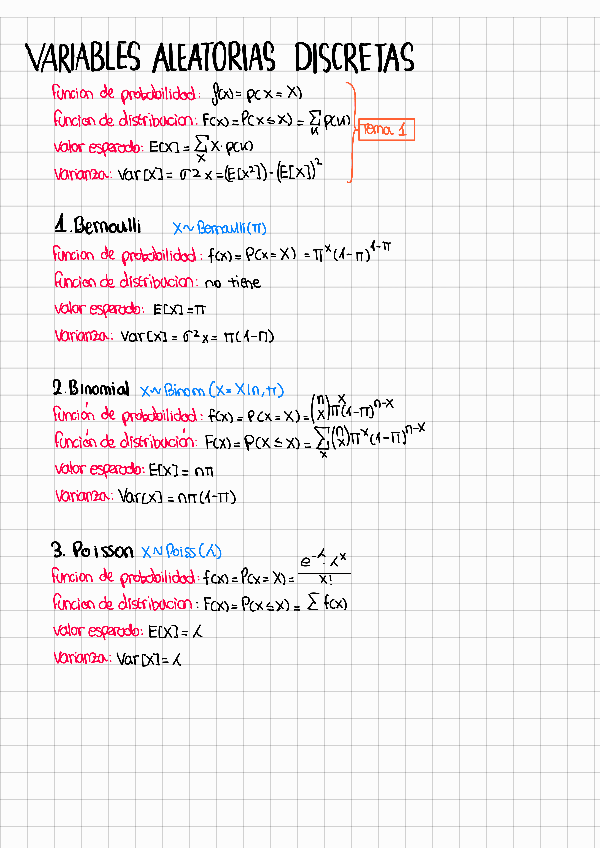 VARIABLES ALEATORIAS DISCRETAS
función de probabilidad: f(x) = p(x = X)
función de distribucion: F(x) = P(X ≤ x) = Σ_u p(u)
Tema 1
valor esperado: E[X] = Σ_x X · p(x)
varianza: Var[X] = σ²x = (E[X²]) - (E[X])²
1. Bernoulli X ~ Bernoulli(π)
función de probabilidad: f(x) = P(X = X) = π^x (1-π)^1-π
funcion de distribucion: no tiene
valor esperado: E[X] = π
varianza: Var[X] = σ²x = π(1-π)
2. Binomial X ~ Binom (X = X|n, π)
función de probabilidad: f(x) = P(X = X) = (n x) π^x (1-π)^n-x
función de distribución: F(x) = P(X ≤ x) = Σ_x (n x) π^x (1-π)^n-x
valor esperado: E[X] = nπ
varianza: Var[X] = nπ(1-π)
3. Poisson X ~ Poiss(λ)
funcion de probabilidad: f(x) = P(X = X) = e^-λ · λ^x / x!
funcion de distribucion: F(x) = P(X ≤ x) = Σ f(x)
valor esperado: E[X] = λ
varianza: Var[X] = λ